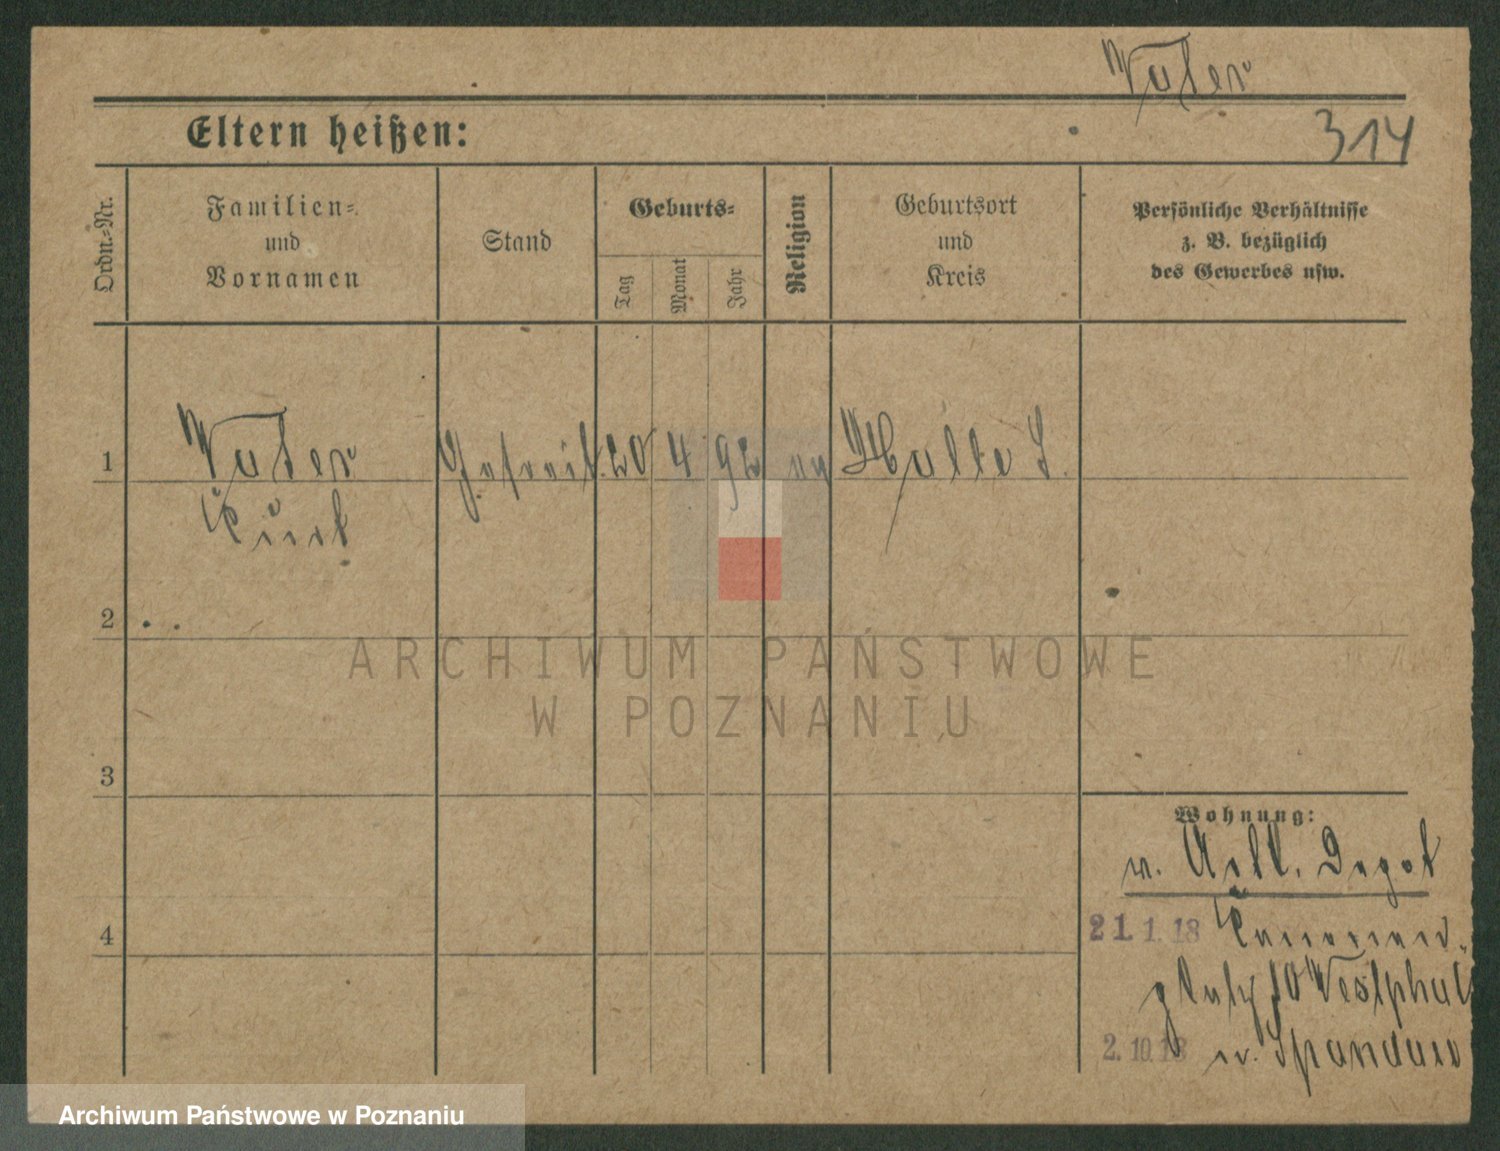 Vater
314
Eltern heißen:
Ordn.-Nr.
Familien-
und
Vornamen
Stand
Geburts-
Tag
Monat
Jahr
Religion
Geburtsort
und
Kreis
Persönliche Verhältnisse
z. B. bezüglich
des Gewerbes usw.
1
Vater
Gefreit. 20 4 92 ev Halle S.
Kurt
2
3
4
Wohnung:
n. Artl. Depot
21. 1. 18
platz 10 Westphal
2. 10. 18 n. Spandau
ARCHIWUM PAŃSTWOWE
W POZNANIU
Archiwum Państwowe w Poznaniu